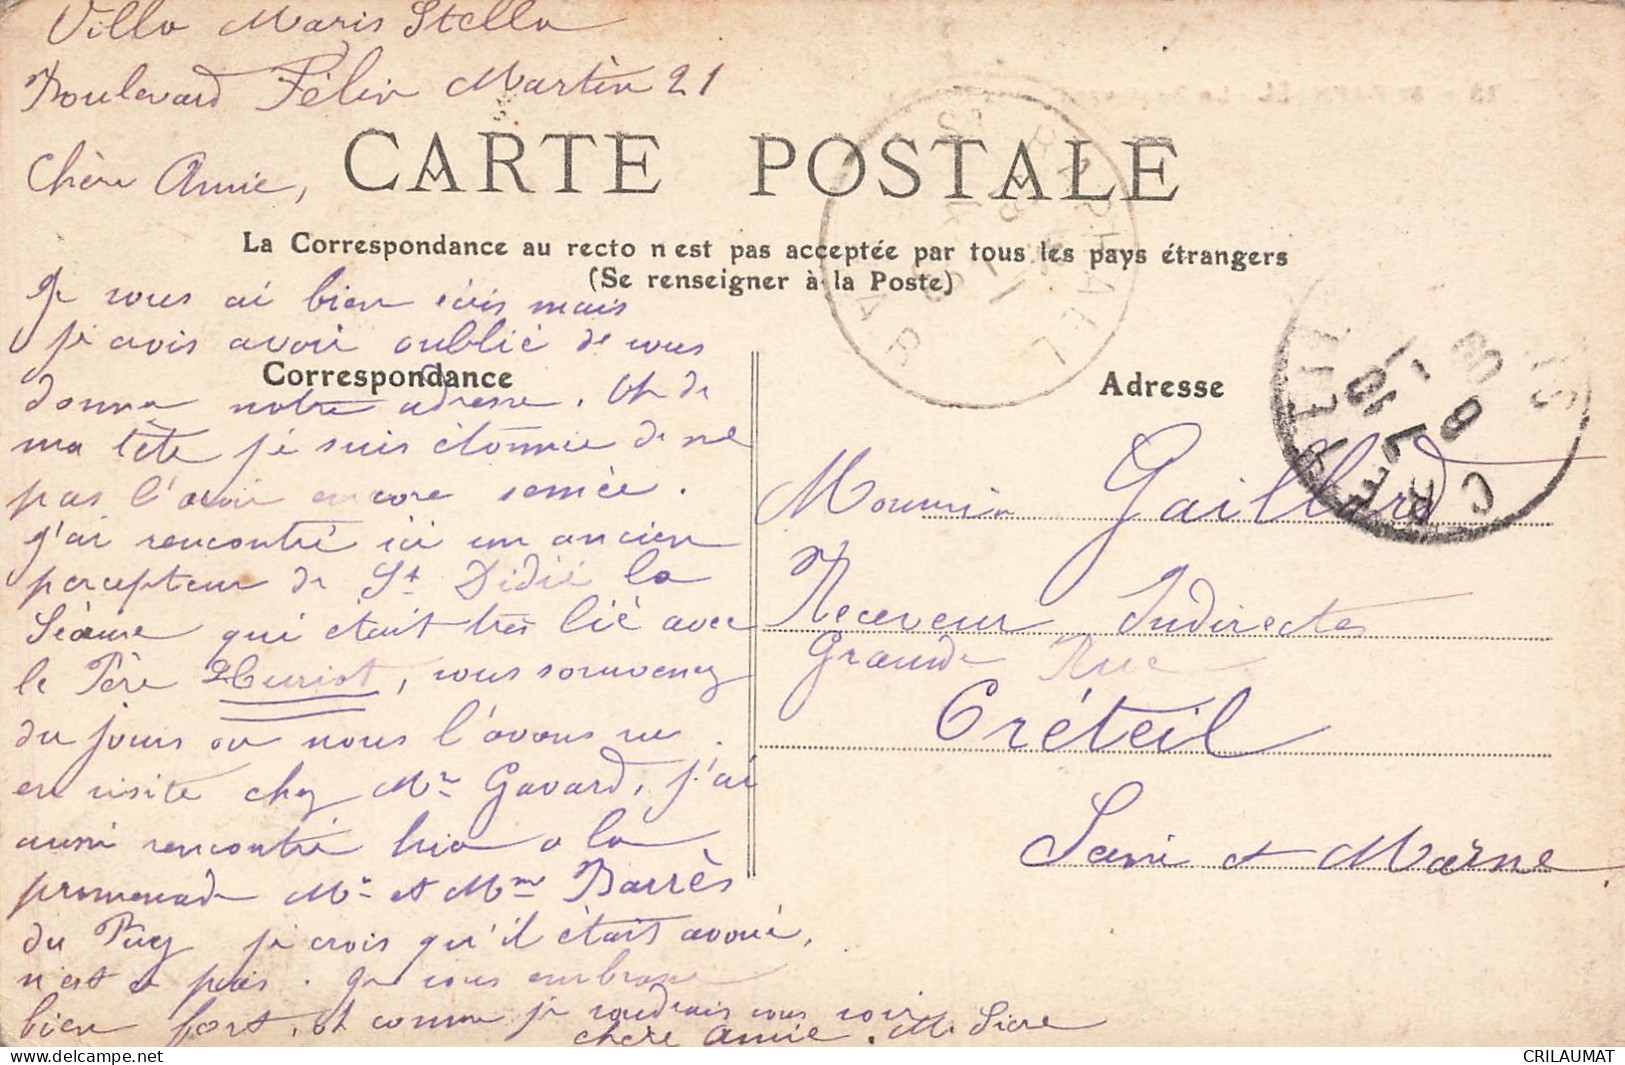 Villa Maris Stella
Boulevard Félix Martin 21
Chère Amie,
CARTE POSTALE
La Correspondance au recto n'est pas acceptée par tous les pays étrangers
(Se renseigner à la Poste)
Je vous ai bien écris mais
je crois avoir oublié de vous
Correspondance
donner notre adresse. Oh de
ma tête je suis étonnée de ne
pas l'avoir encore semée.
j'ai rencontré ici un ancien
percepteur de St Didié la
Séauve qui était très lié avec
le Père Heuriot, vous souvenez
du jour ou nous l'avons vu
en visite chez Mr Gavard, j'ai
aussi rencontré hier a la
promenade Mr et Mme Barrès
du Puy je crois qu'il était avoué,
n'est ce pas. Je vous embrasse
bien fort, et comme je voudrais vous voir
chère amie. M. Sicre
Adresse
Monsieur Gaillard
Receveur Indirectes
Grande Rue
Créteil
Seine et Marne
ST RAPHAEL
VAR
CRETEIL
CRILAUMAT